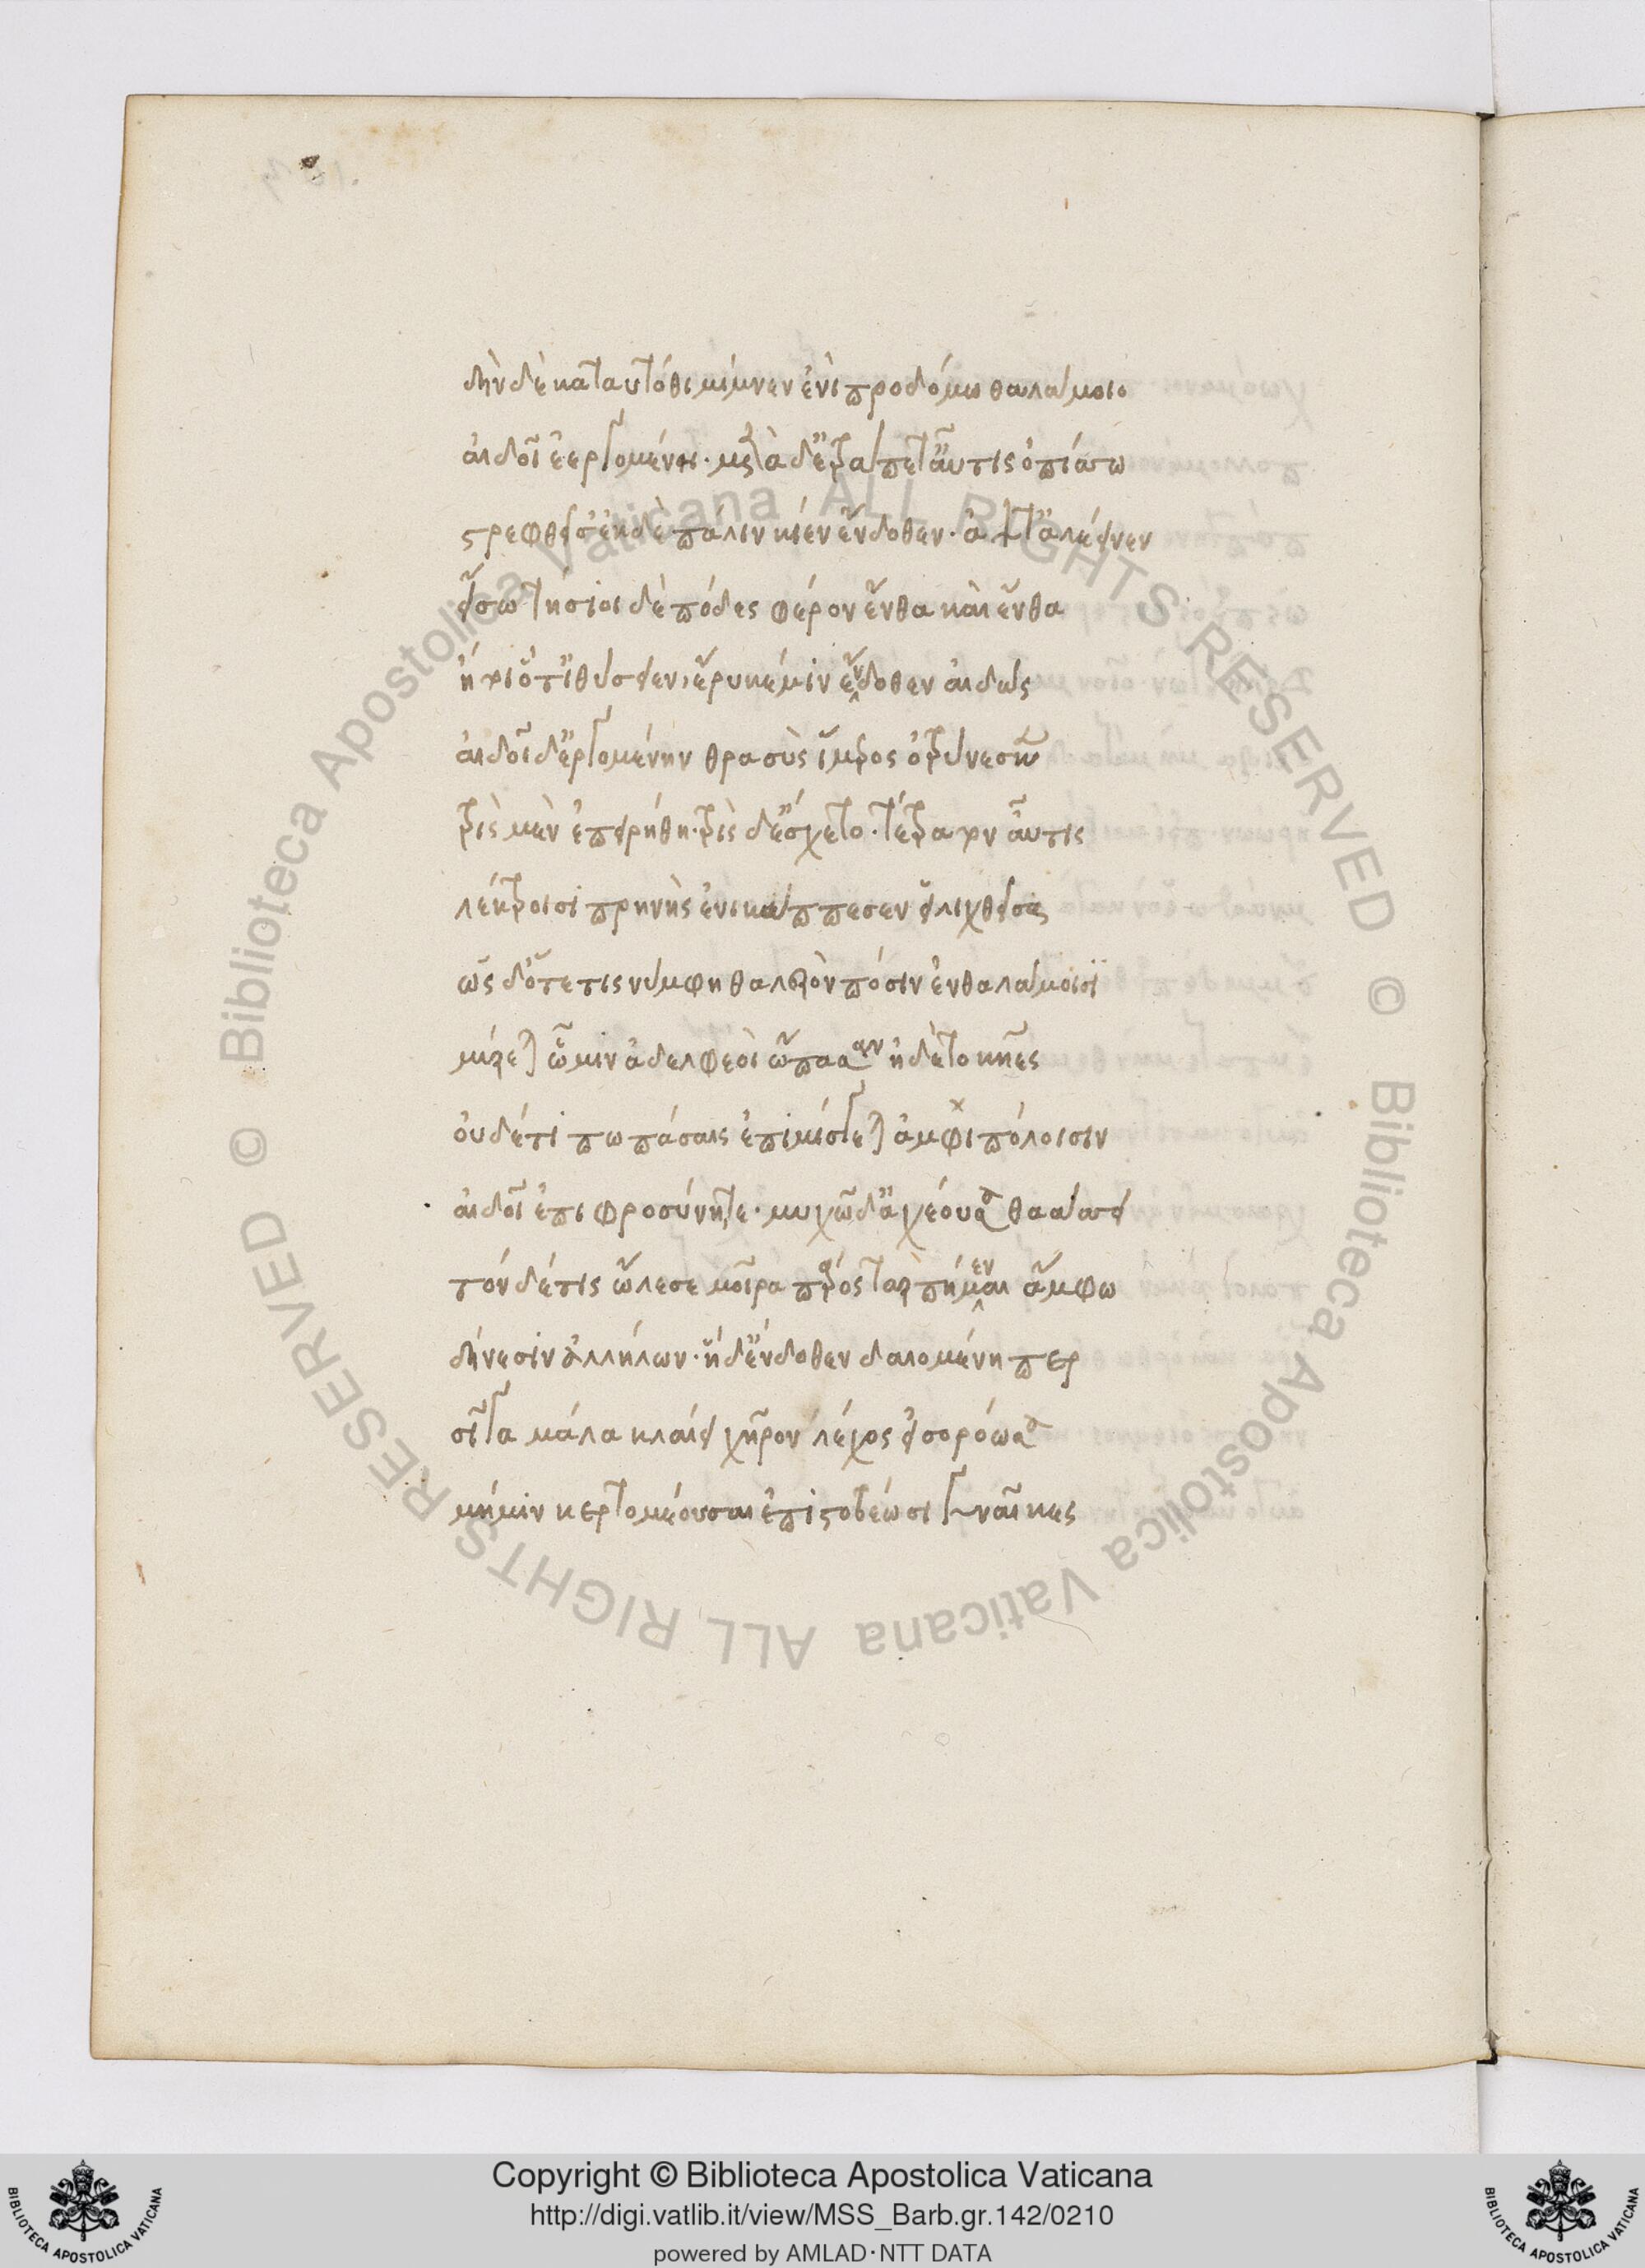 δὴν δὲ κατ' αὐτόθι μίμνεν ἐνὶ προδόμω θαλάμοιο
αἰδοῖ ἐεργομένη· μετὰ δ' ἐτράπετ' αὖτις ὀπίσσω
στρεφθεῖσ' ἐκ δὲ πάλιν κίεν ἔνδοθεν· ἄψ τ' ἀλέεινεν
εἴσω τηΰσιοι δὲ πόδες φέρον ἔνθα καὶ ἔνθα
ἤτοι ὅτ' ἰθύσειεν, ἔρυκέ μιν ἔνδοθεν αἰδώς
αἰδοῖ δ' ἐργομένην θρασὺς ἵμερος ὀτρύνεσκεν
τρὶς μὲν ἐπειρήθη· τρὶς δ' ἔσχετο· τέτρατον αὖτις
λέκτροισι πρηνὴς ἐνικάππεσεν εἱλιχθεῖσα
ὡς δ' ὅτε τις νύμφη θαλερὸν πόσιν ἐν θαλάμοισι
μύρεται ᾧ μιν ἀδελφεοὶ ὤπασαν ἠδὲ τοκῆες
οὐδέ τί πω πάσαις ἐπιμίσγεται ἀμφιπόλοισιν
αἰδοῖ ἐπιφροσύνῃ τε· μυχῷ δ' ἀχέουσα θαάσσει
τὸν δέ τις ὤλεσε μοῖρα πάρος ταρπήμεναι ἄμφω
δήνεσιν ἀλλήλων· ἡ δ' ἔνδοθεν δαιομένη περ
σῖγα μάλα κλαίει χῆρον λέχος εἰσορόωσα
μή μιν κερτομέουσαι ἐπιστοβέωσι γυναῖκες
Copyright © Biblioteca Apostolica Vaticana
http://digi.vatlib.it/view/MSS_Barb.gr.142/0210
powered by AMLAD·NTT DATA